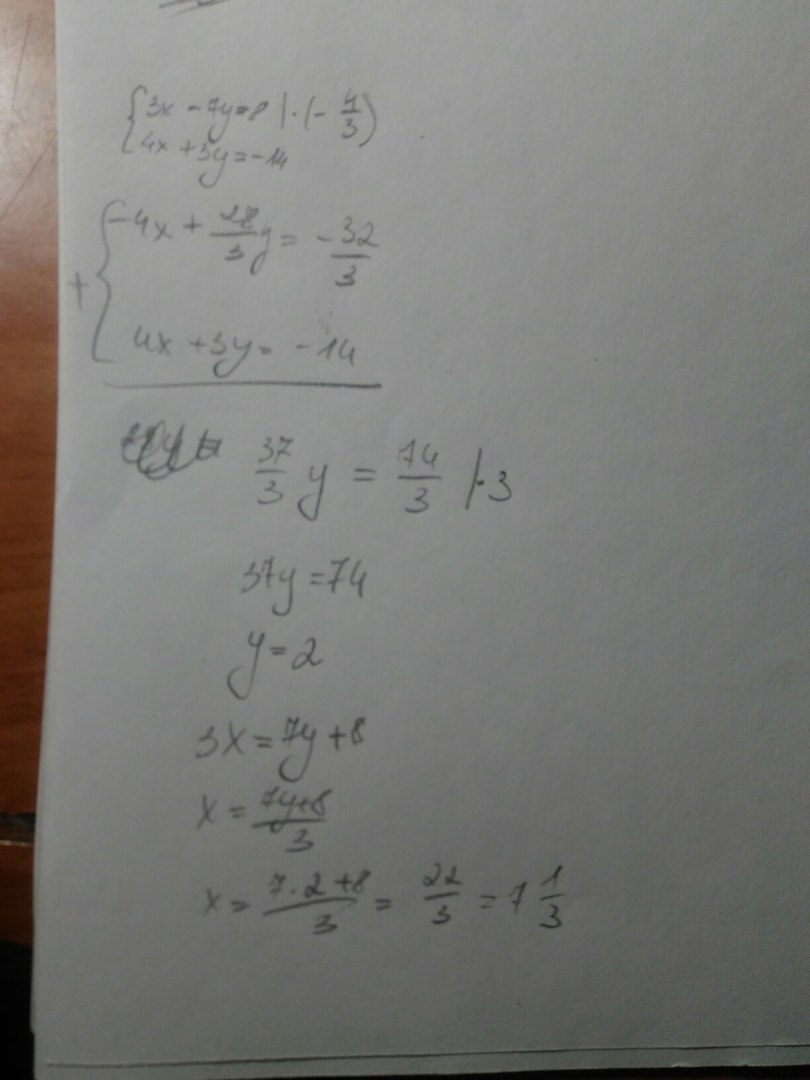 {3x - 7y = 8 | · (- 4/3)
4x + 3y = -14
+ {-4x + 28/3 y = - 32/3
4x + 3y = -14
37/3 y = 74/3 | · 3
37y = 74
y = 2
3x = 7y + 8
x = 7y+8/3
x = 7·2+8/3 = 22/3 = 7 1/3